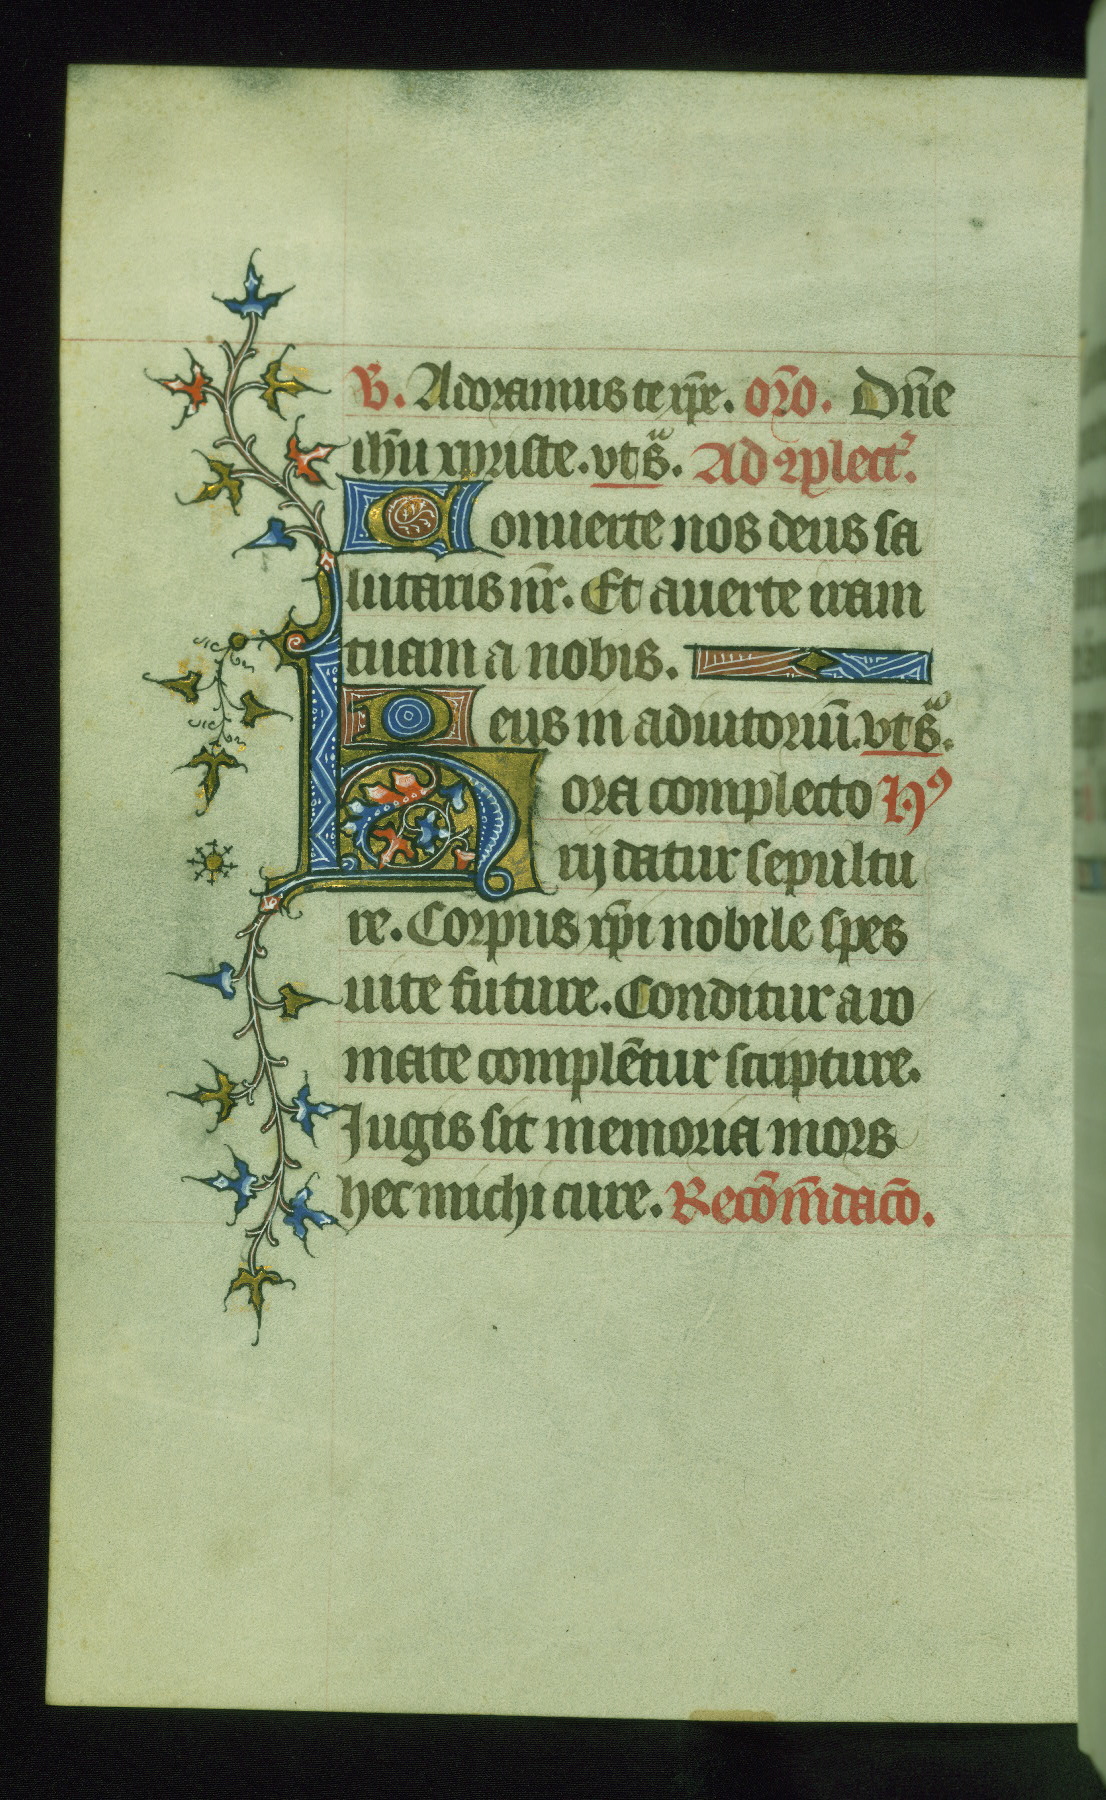 V̄. Adoramus te xp̄e. or̄o. Dn̄e
ih̄u xpriste. vt sᵃ. Ad ꝯplect'.
Conuerte nos deus sa
lutaris nr̄. Et auerte iram
tuam a nobis.
Deus in adiutoriū. vt sᵃ.
Hora completo Hꝰ
rij datur sepultu
re. Corpus xp̄i nobile spes
uite future. Conditur aro
mate complētur scripture.
Iugis sit memoria mors
hec michi cure. Recōm̄dacō.